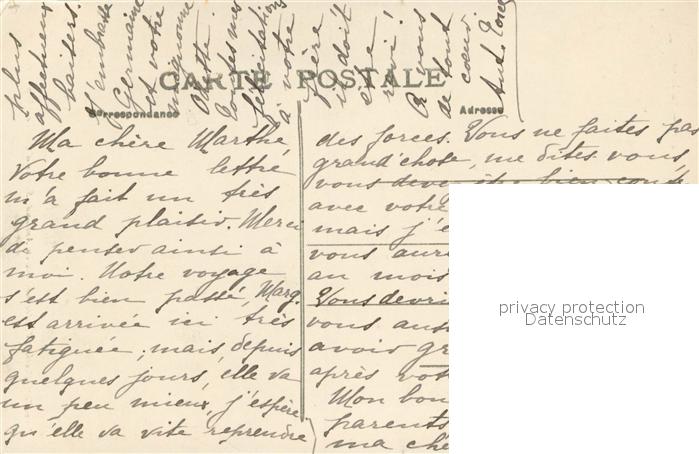 CARTE POSTALE
Correspondance
Adresse
Ma chère Marthe,
Votre bonne lettre
m'a fait un très
grand plaisir. Merci
de penser ainsi à
moi. Notre voyage
s'est bien passé, Marg.
est arrivée ici très
fatiguée, mais, depuis
quelques jours, elle va
un peu mieux, j'espère
qu'elle va vite reprendre
des forces. Vous ne faites pas
grand'chose, me dites vous,
vous devez être bien
avec votre
mais j'e
vous aur
au mois
Vous devri
vous aus
avoir gr
après vot
Mon bon
parents
ma ché
plus
affectueux
baisers.
J'embrasse
Germaine
et votre
mignonne
Toutes mes
félicitations
à votre
père
il doit
être
ravi!
A vous
de tout
coeur.
privacy protection
Datenschutz